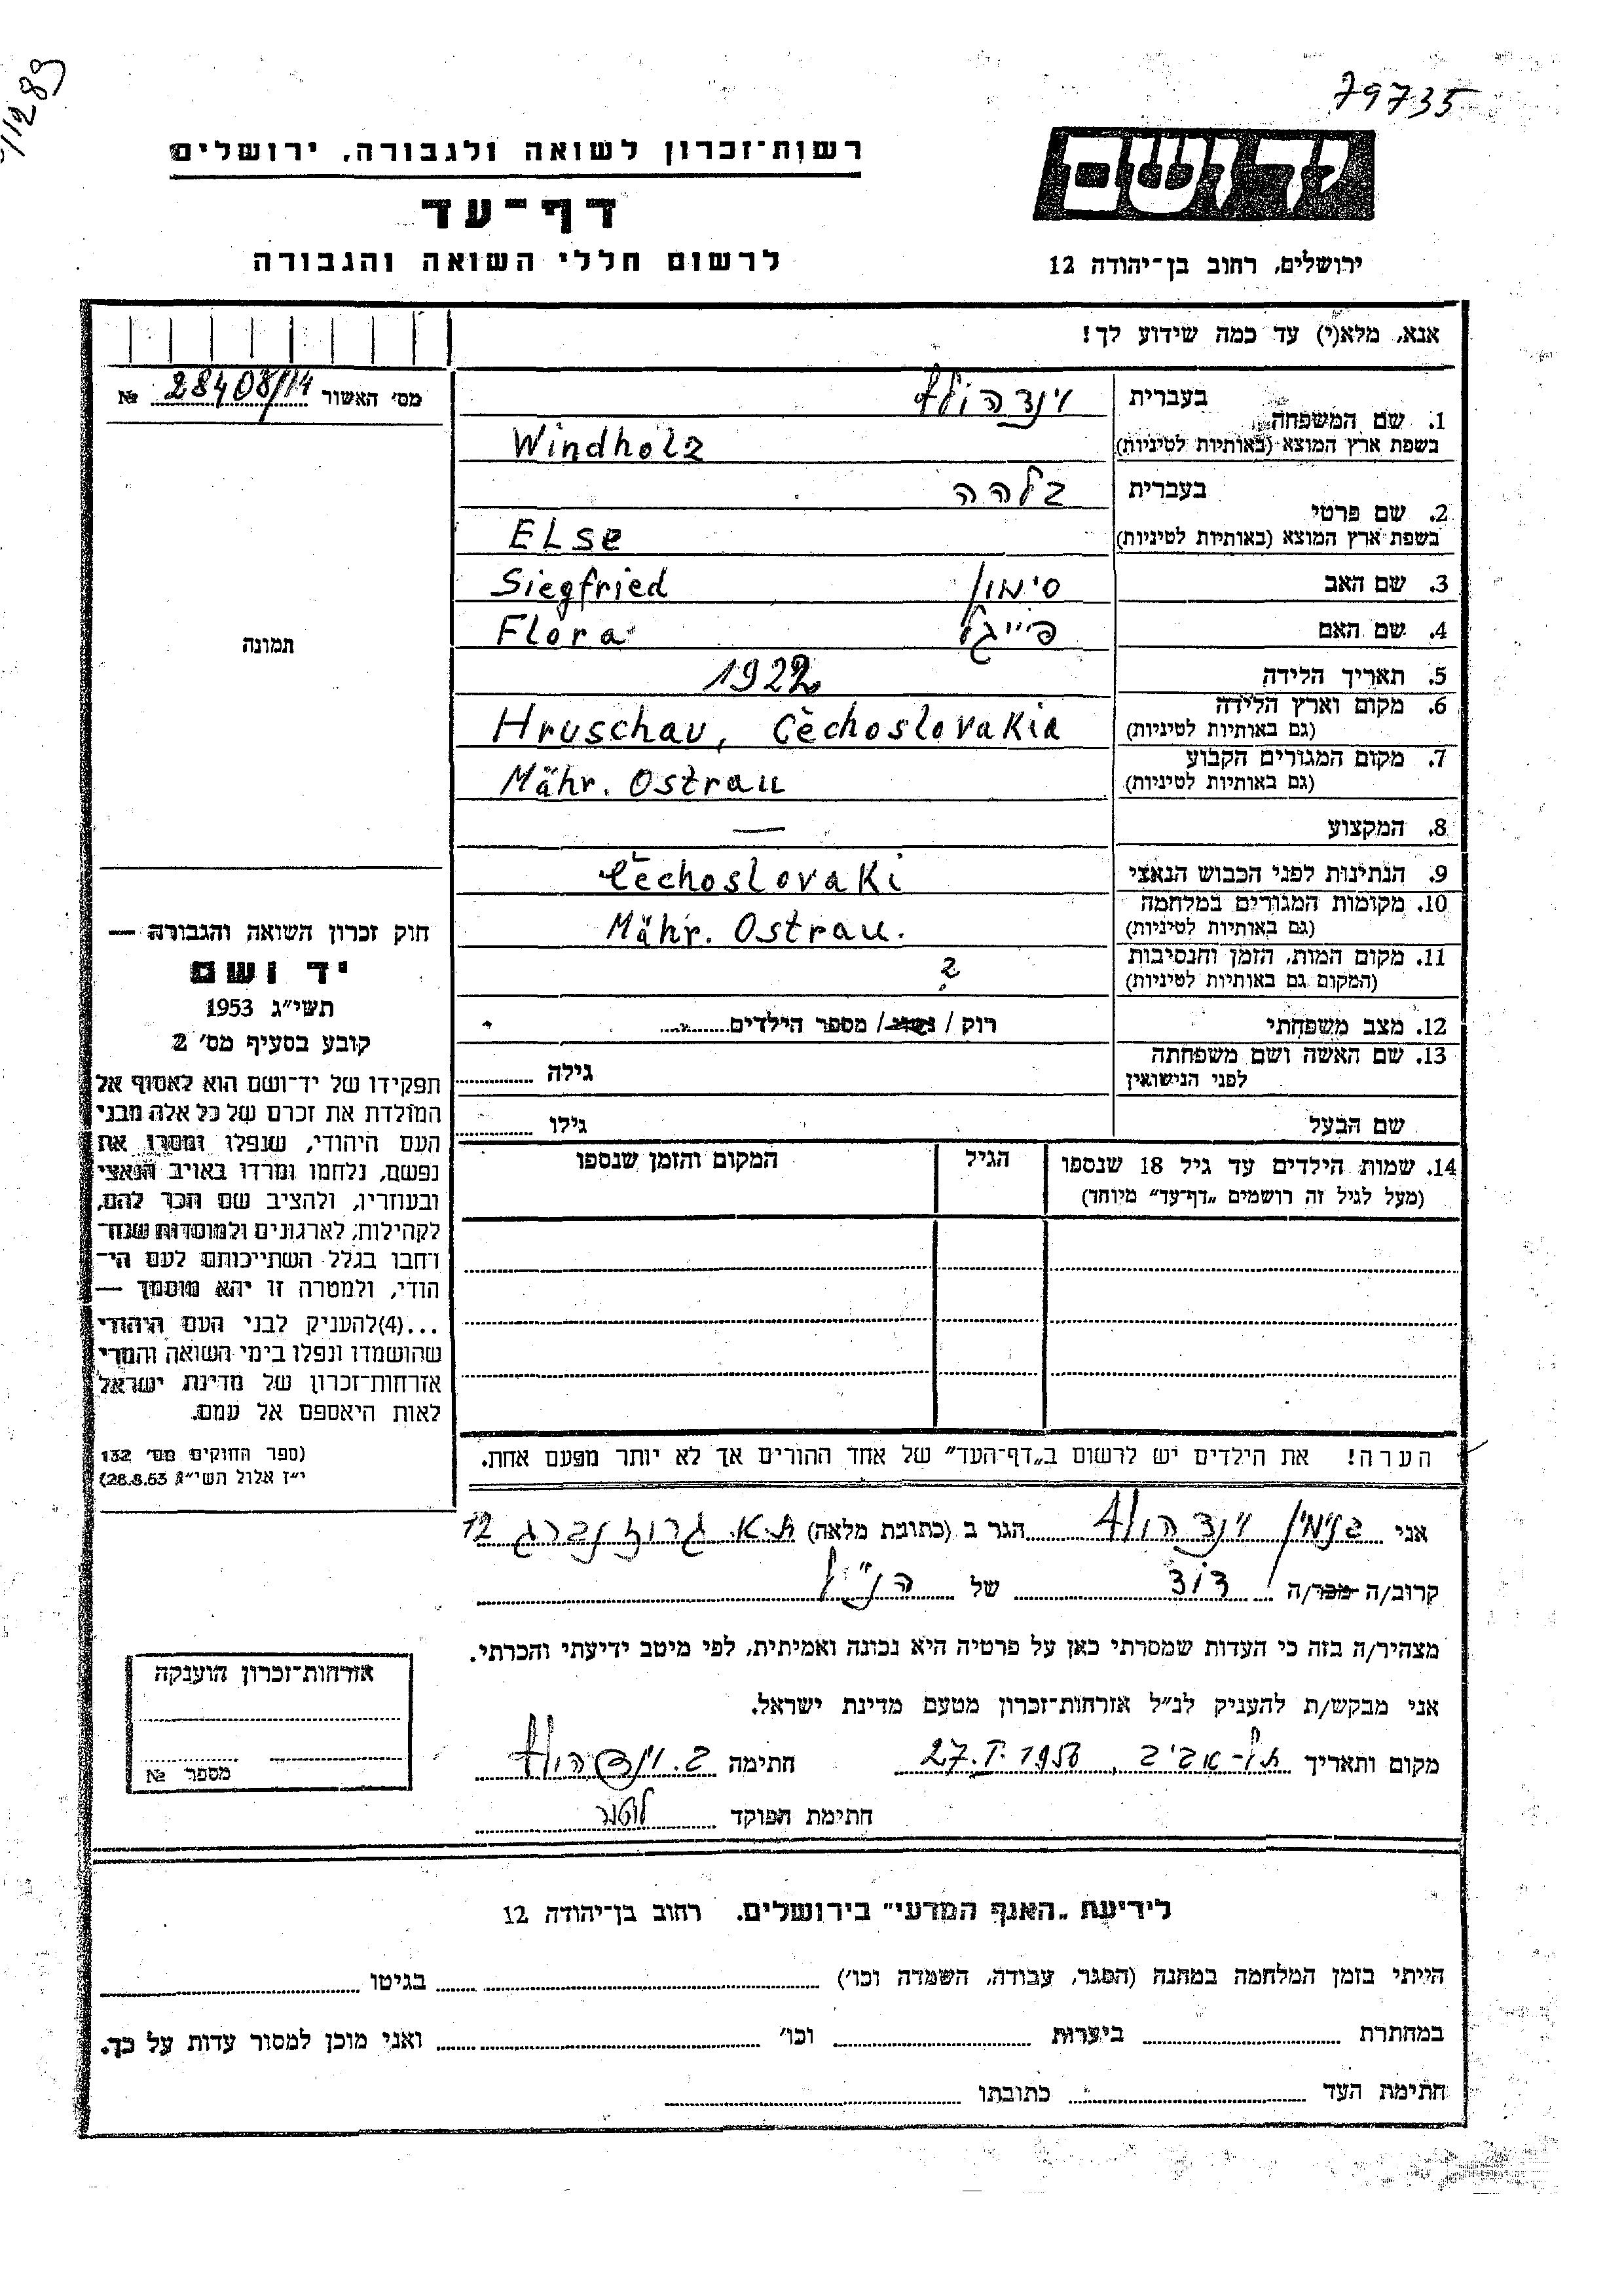 79735
רשות־זכרון לשואה ולגבורה, ירושלים
דף־עד
לרשום חללי השואה והגבורה
יד ושם
ירושלים, רחוב בן־יהודה 12
אנא, מלא(י) עד כמה שידוע לך!
מס' האשור 28408/14 №
1. שם המשפחה בעברית וינדהולץ
בשפת ארץ המוצא (באותיות לטיניות) Windholz
2. שם פרטי בעברית בלהה
בשפת ארץ המוצא (באותיות לטיניות) ELse
3. שם האב סימון Siegfried
4. שם האם פייגל Flora
5. תאריך הלידה 1922
6. מקום וארץ הלידה
(גם באותיות לטיניות) Hruschau, Čechoslovakia
7. מקום המגורים הקבוע
(גם באותיות לטיניות) Mähr. Ostrau
8. המקצוע —
9. הנתינות לפני הכבוש הנאצי Čechoslovaki
10. מקומות המגורים במלחמה
(גם באותיות לטיניות) Mähr. Ostrau.
11. מקום המות, הזמן והנסיבות
(המקום גם באותיות לטיניות) ?
12. מצב משפחתי רוק / נשוי / מספר הילדים
13. שם האשה ושם משפחתה
לפני הנישואין גילה
שם הבעל גילו
14. שמות הילדים עד גיל 18 שנספו הגיל המקום והזמן שנספו
(מעל לגיל זה רושמים „דף־עד” מיוחד)
תמונה
חוק זכרון השואה והגבורה —
יד ושם
תשי״ג 1953
קובע בסעיף מס' 2
תפקידו של יד־ושם הוא לאסוף אל
המולדת את זכרם של כל אלה מבני
העם היהודי, שנפלו ומסרו את
נפשם, נלחמו ומרדו באויב הנאצי
ובעוזריו, ולהציב שם וזכר להם,
לקהילות, לארגונים ולמוסדות שנח־
רחבו בגלל השתייכותם לעם הי־
הודי, ולמטרה זו יהא מוסמך —
...(4)להעניק לבני העם היהודי
שהושמדו ונפלו בימי השואה והמרי
אזרחות־זכרון של מדינת ישראל
לאות היאספם אל עמם.
(ספר החוקים מס' 132
י״ז אלול תשי״ג 28.8.53)
הערה! את הילדים יש לרשום ב„דף־העד” של אחד ההורים אך לא יותר מפעם אחת.
אני בנימין וינדהולץ הגר ב (כתובת מלאה) ת.א. גרוזנברג 12
קרוב/ה מכר/ה דוד של הנ״ל
מצהיר/ה בזה כי העדות שמסרתי כאן על פרטיה היא נכונה ואמיתית, לפי מיטב ידיעתי והכרתי.
אני מבקש/ת להעניק לנ״ל אזרחות־זכרון מטעם מדינת ישראל.
מקום ותאריך תל-אביב, 27.I.1956 חתימה ב. וינדהולץ
חתימת הפוקד
אזרחות־זכרון הוענקה
מספר №
לידיעת „האגף המדעי” בירושלים. רחוב בן־יהודה 12
הייתי בזמן המלחמה במחנה (הסגר, עבודה, השמדה וכו') בגיטו
במחתרת ביערות וכו' ואני מוכן למסור עדות על כך.
חתימת העד כתובתו